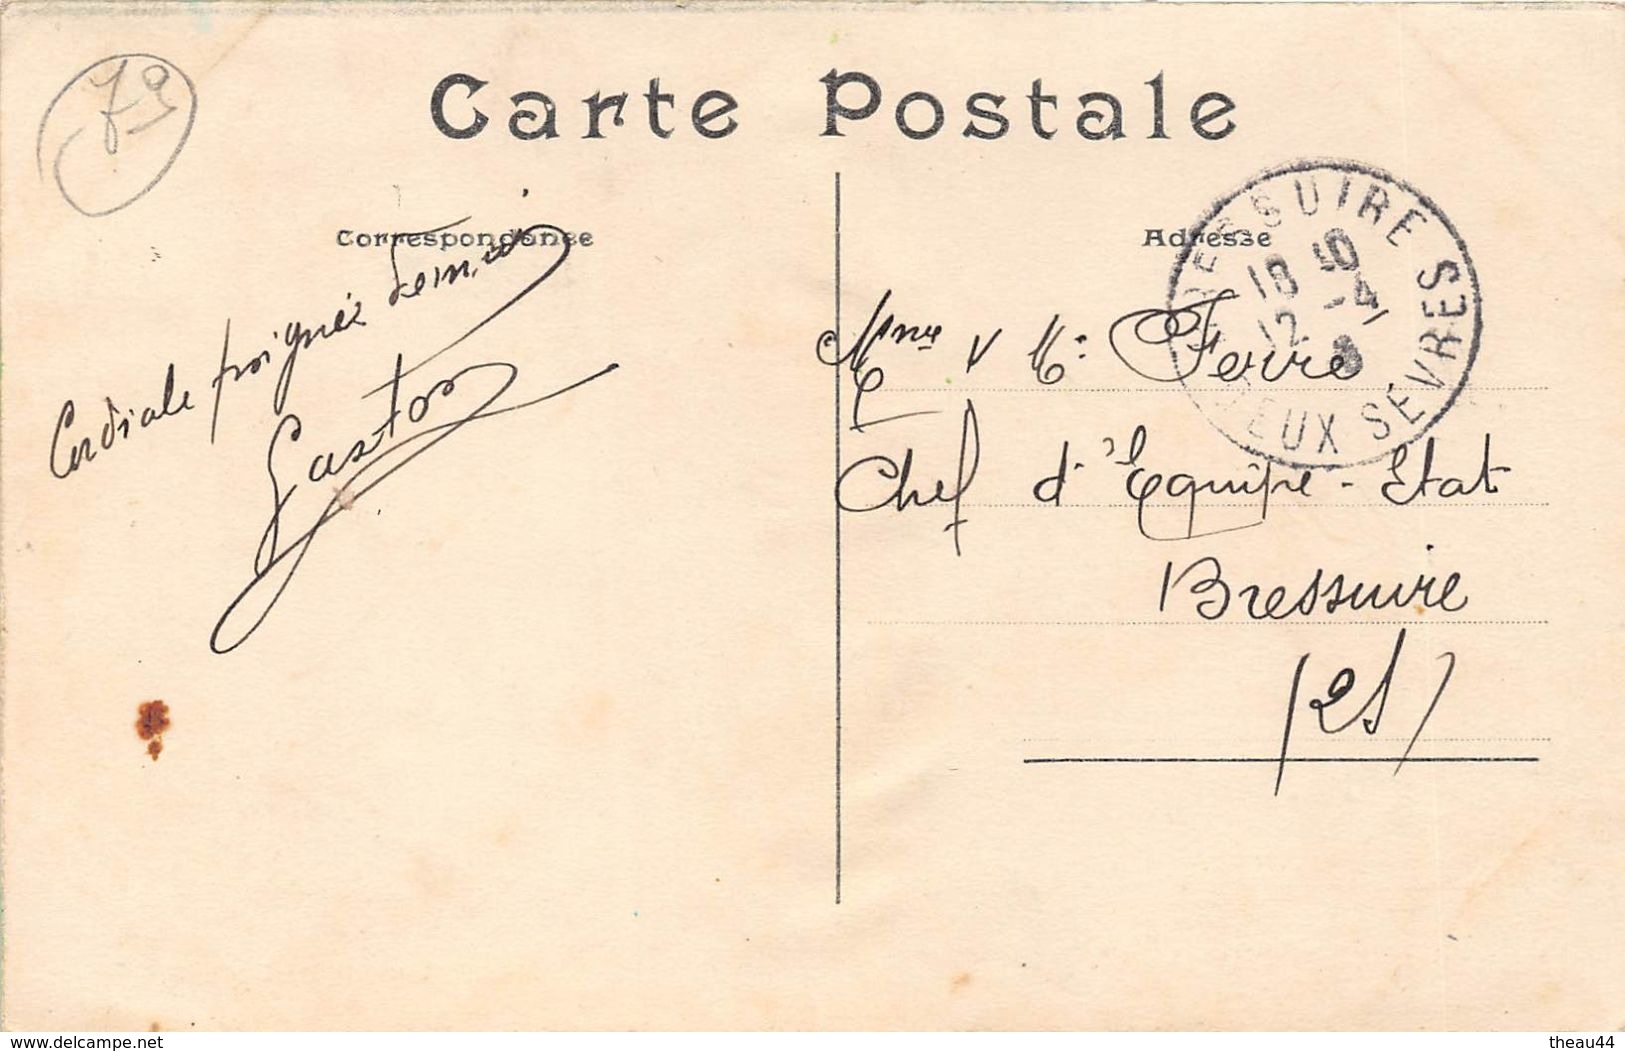 79
Carte Postale
Correspondance
Adresse
BRESSUIRE
18 10
12 -4
DEUX SEVRES
Cordiale poignée
Gaston
Mme & Mr Ferré
Chef d'Equipe - Etat
Bressuire
(2S)
www.delcampe.net
theau44